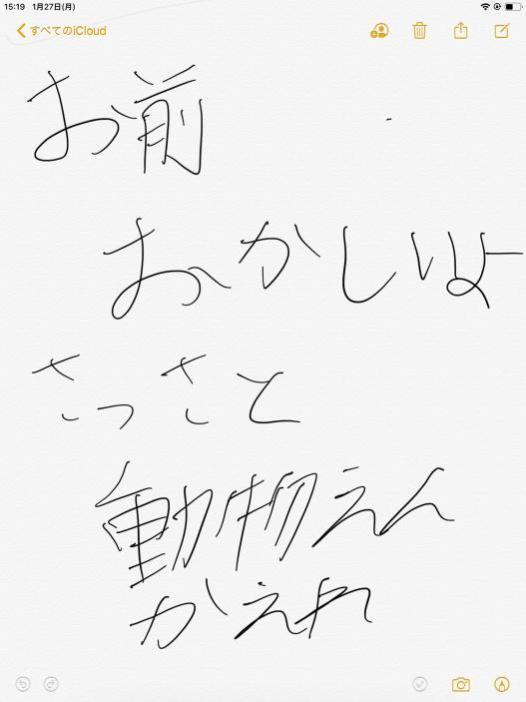 15:19 1月27日(月)
すべてのiCloud
お前
おかしいよ
さっさと
動物えん
かえれ